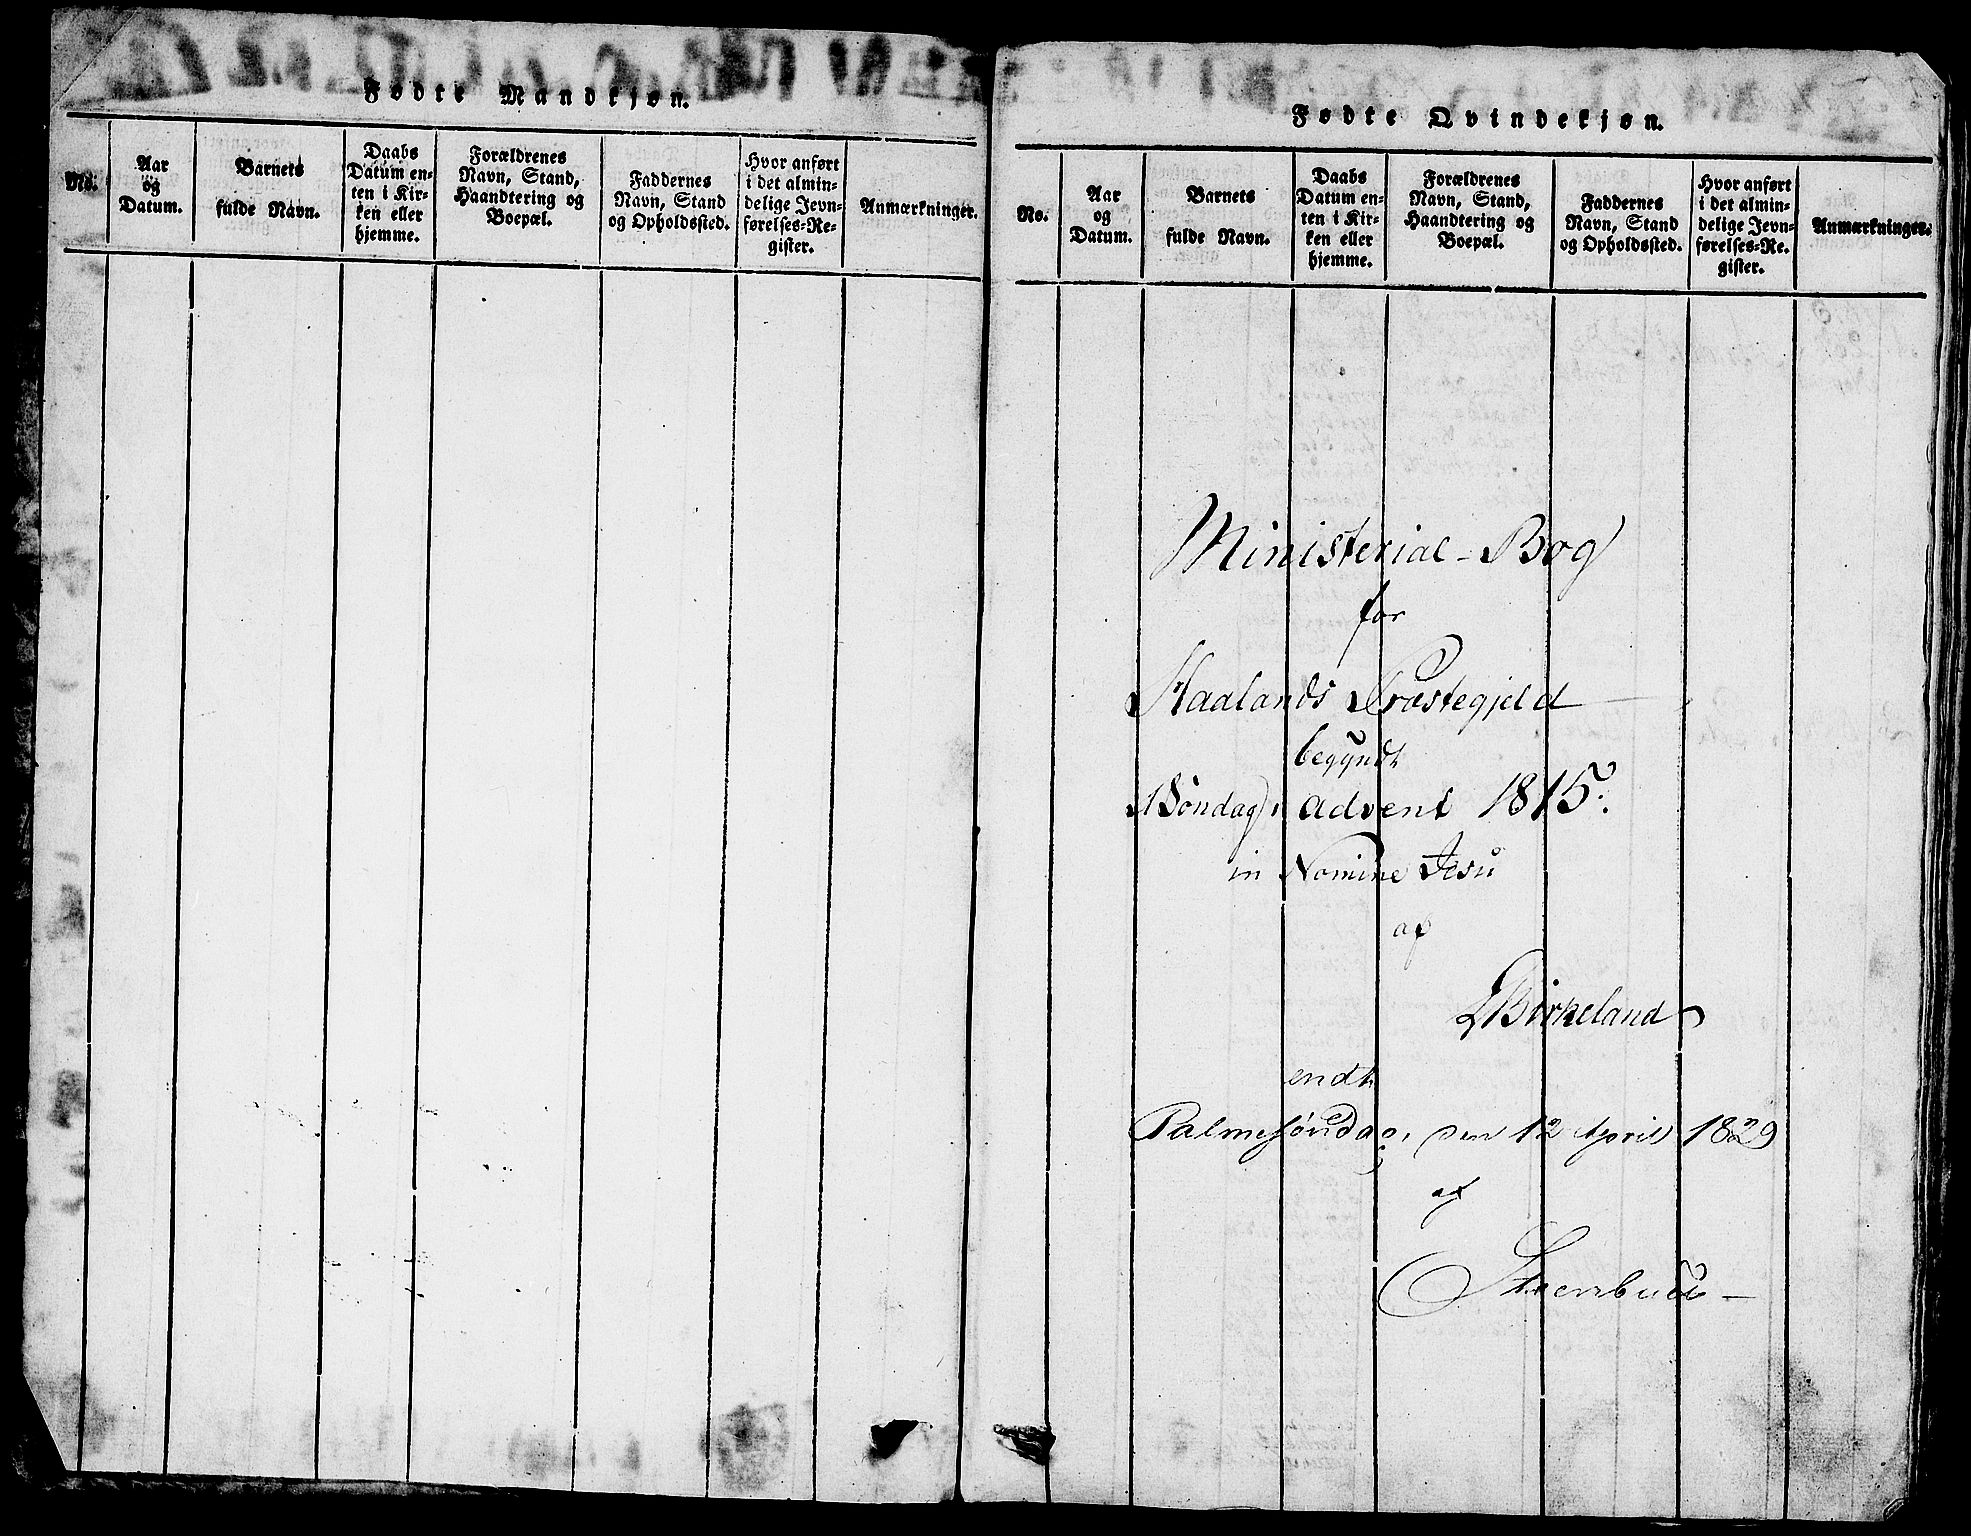 Fødte Mandkjøn.
No.
Aar
og
Datum.
Barnets
fulde Navn.
Daabs
Datum en-
ten i Kir-
ken eller
hjemme.
Forældrenes
Navn, Stand,
Haandtering og
Boepæl.
Faddernes
Navn, Stand
og Opholdssted.
Hvor anført
i det almin-
delige Jevn-
førelses-Re-
gister.
Anmærkninger.
Fødte Qvindekjøn.
No.
Aar
og
Datum.
Barnets
fulde Navn.
Daabs
Datum en-
ten i Kir-
ken eller
hjemme.
Forældrenes
Navn, Stand,
Haandtering og
Boepæl.
Faddernes
Navn, Stand
og Opholdssted.
Hvor anført
i det almin-
delige Jevn-
førelses-Re-
gister.
Anmærkninger.
Ministerial-Bog
for
Haalands Præstegjeld
begyndt
Søndag i Advent 1815.
in Nomine Jesu
af
Birkeland
endt
Palmesøndag, den 12 April 1829
af
Steenbuch